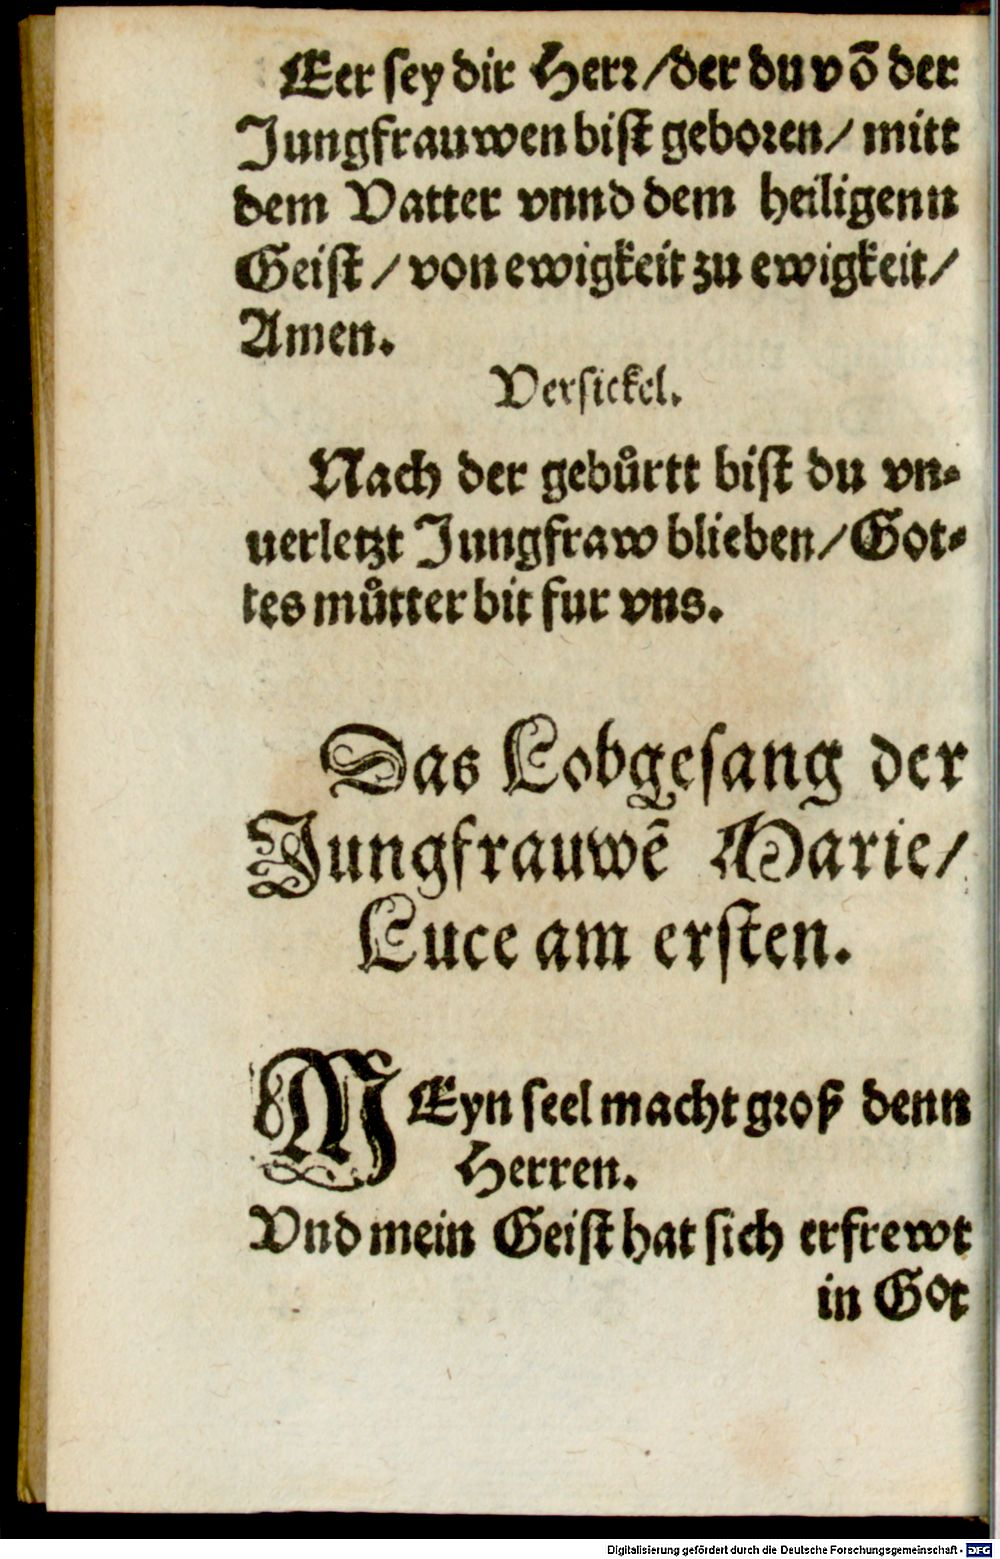 Eer sey dir Herr/der du võ der
Jungfrauwen bist geboren/ mitt
dem Vatter vnnd dem heiligenn
Geist/von ewigkeit zu ewigkeit/
Amen.
Versickel.
Nach der gebůrtt bist du vn-
uerletzt Jungfraw blieben/Got-
tes můtter bit fur vns.
Das Lobgesang der
Jungfrauwẽ Marie/
Luce am ersten.
MEyn seel macht groß denn
Herren.
Vnd mein Geist hat sich erfrewt
in Got
Digitalisierung gefördert durch die Deutsche Forschungsgemeinschaft - DFG